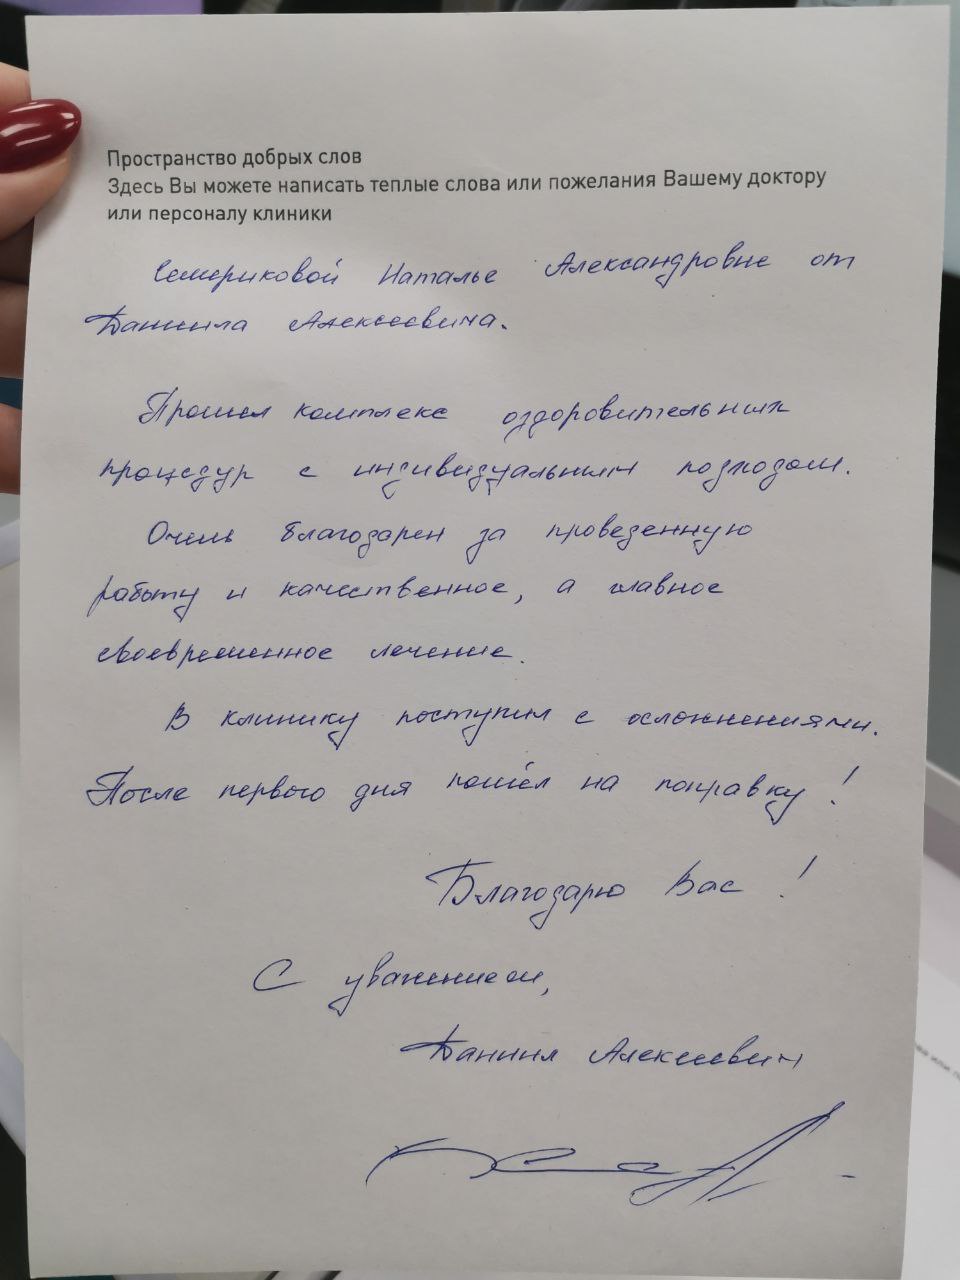 Пространство добрых слов
Здесь Вы можете написать теплые слова или пожелания Вашему доктору
или персоналу клиники
Семериковой Наталье Александровне от
Даниила Алексеевича.
Прошел комплекс оздоровительных
процедур с индивидуальным подходом.
Очень благодарен за проведенную
работу и качественное, а главное
своевременное лечение.
В клинику поступил с осложнениями.
После первого дня пошёл на поправку!
Благодарю Вас!
С уважением,
Даниил Алексеевич